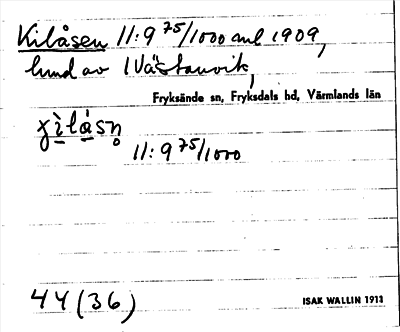 Kilåsen 11:9 75/1000 ml 1909,
lund av 1 Västanvik,
Fryksände sn, Fryksdals hd, Värmlands län
11:9 75/1000
44 (36)
ISAK WALLIN 1913